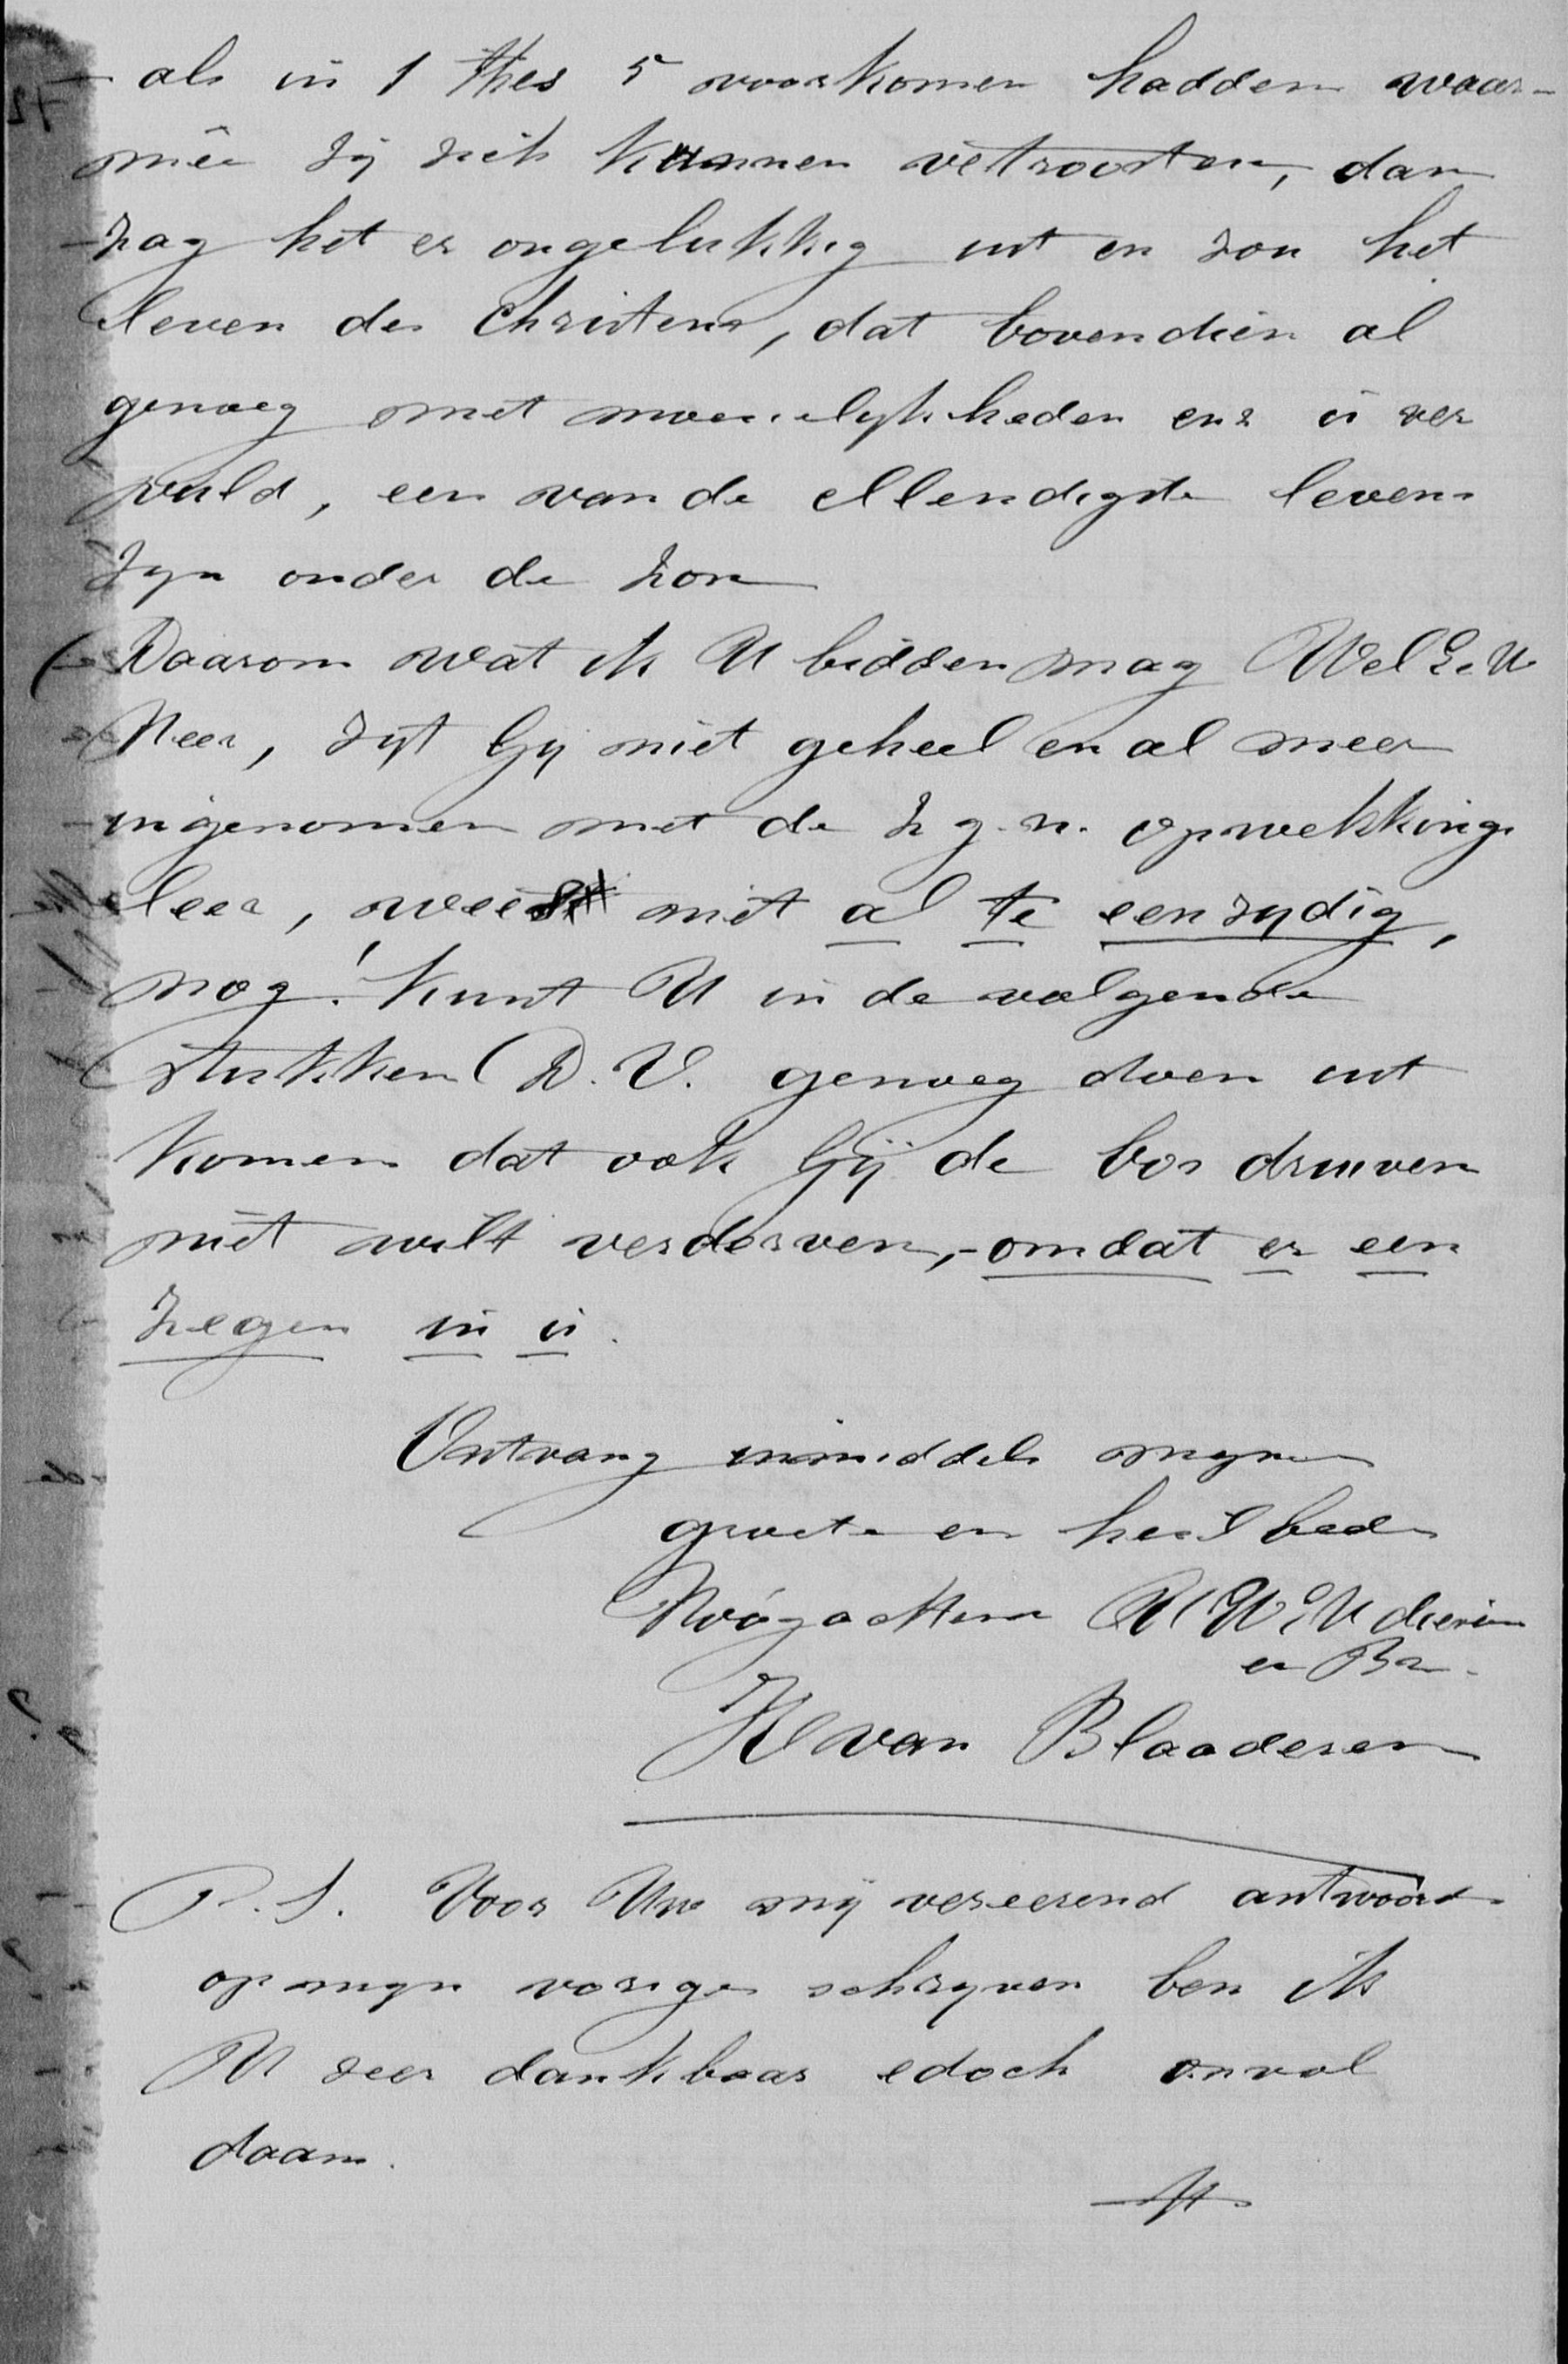 als in 1 Thes 5 voorkomen hadden waar-
mêe zij zich kunnen vertroosten, dan
zag het er ongelukkig uit en zou het
leven des Christens, dat bovendien al
genoeg met moeielykheden enz is ver
vuld, een van de ellendigste levens
zyn onder de zon
Daarom wat ik U bidden mag WelE.
Heer, zyt Gy niet geheel en al meer
ingenomen met de z g. n. opwekkings
leer, wees niet al te eenzydig,
nog! kunt U in de volgende
stukken (D. V. genoeg doen uit
komen dat ook Gij de bos druiven
niet wilt verderven, - omdat er een
zegen in is.
Ontvang inmiddels mynen
groete en heilbede
Hoogachtend UWE dienaar
en Br.
H van Blaaderen
P. S. Voor Uw mij vereerend antwoord
op myn vorige schryven ben ik
U zeer dankbaar edoch onvol
daan.